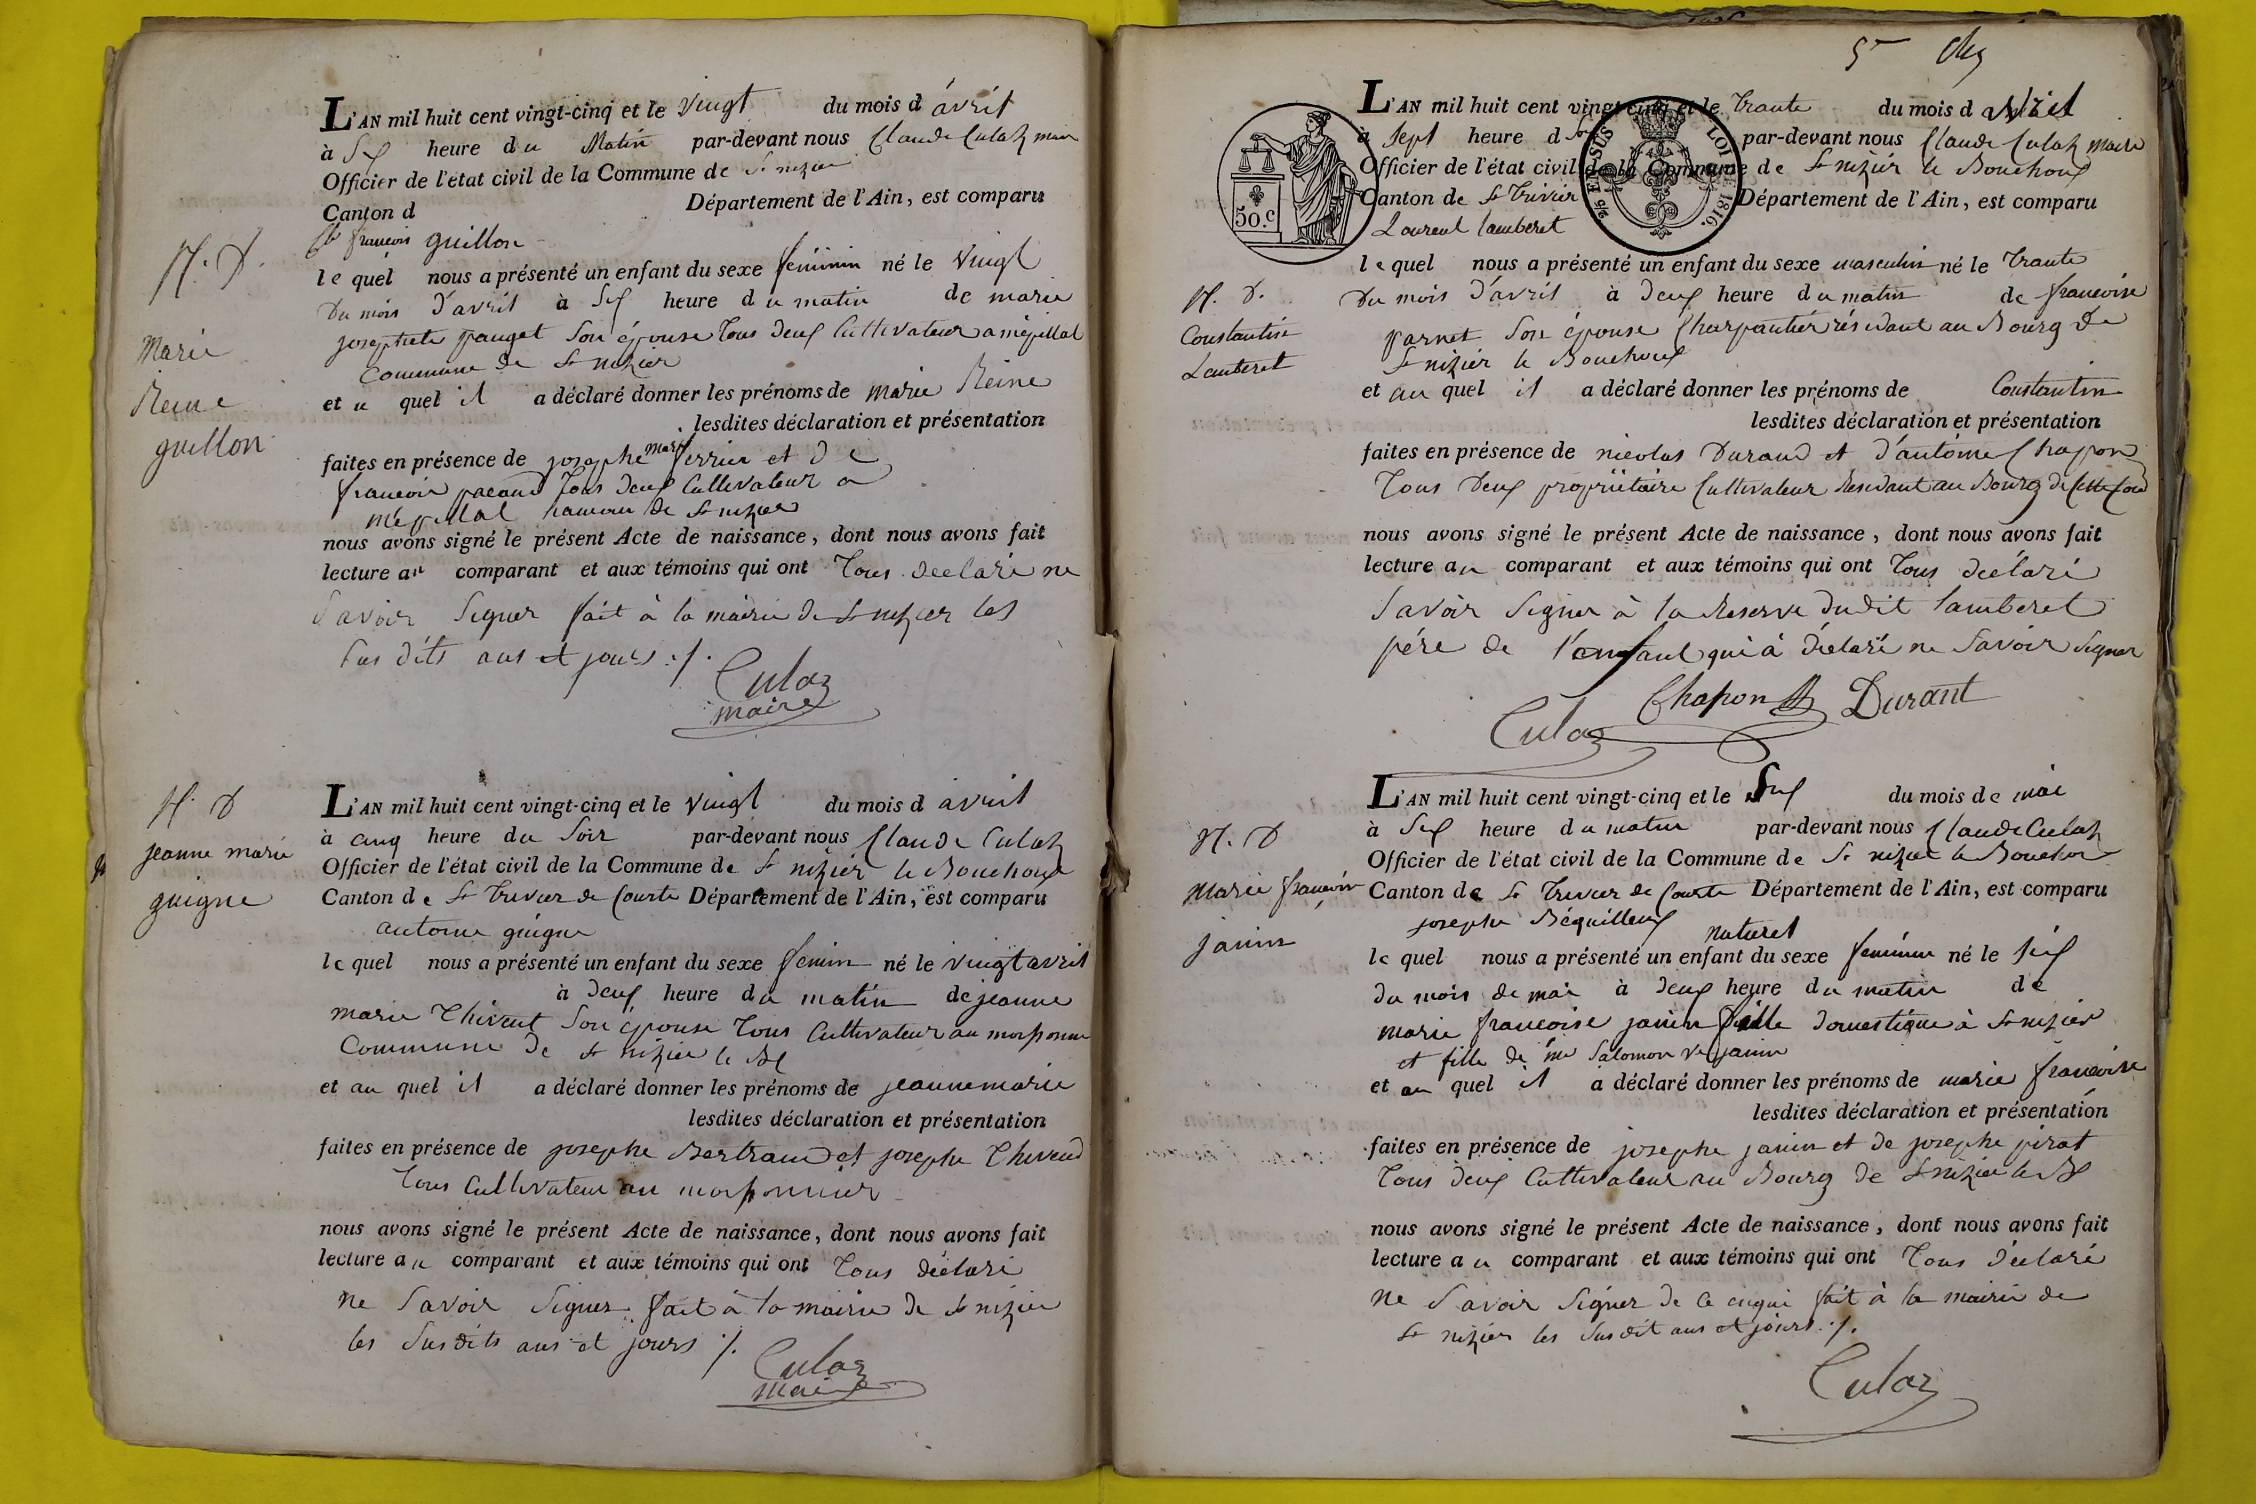 L'AN mil huit cent vingt-cinq et le vingt du mois d avril
à Six heure du Matin par-devant nous Claude Culaz maire
Officier de l'état civil de la Commune de St nizier
Canton d Département de l'Ain, est comparu
françois guillon
le quel nous a présenté un enfant du sexe féminin né le vingt
Du mois d'avril à Six heure du matin de marie
josephete pauget Son épouse Tous deux Cultivateur a mépillat
Commune de St nizier
et a quel il a déclaré donner les prénoms de marie Reine
lesdites déclaration et présentation
faites en présence de josephe marie ferrier et de
francois pacaud Tous deux Cultivateur a
mépillat hameau de St nizier
nous avons signé le présent Acte de naissance, dont nous avons fait
lecture au comparant et aux témoins qui ont Tous déclaré ne
Savoir Signer fait à la mairie de St nizier les
Sus dits ans et jours ./.
Culaz
maire
N. D.
Marie
Reine
guillon
L'AN mil huit cent vingt-cinq et le vingt du mois d avril
à cinq heure du Soir par-devant nous Claude Culaz
Officier de l'état civil de la Commune de St nizier le Bouchoux
Canton de St Trivier de Courte Département de l'Ain, est comparu
antoine guigue
le quel nous a présenté un enfant du sexe féminin né le vingt avril
à deux heure du matin de jeanne
marie Thivent Son épouse Tous Cultivateur au
Commune de St nizier le Bx
et au quel il a déclaré donner les prénoms de jeanne marie
lesdites déclaration et présentation
faites en présence de josephe Bertrand et josephe Thivend
Tous Cultivateur au
nous avons signé le présent Acte de naissance, dont nous avons fait
lecture au comparant et aux témoins qui ont Tous déclaré
ne Savoir Signer fait à la mairie de St nizier
les Susdits ans et jours ./.
Culaz
Maire
N. D
jeanne marie
guigue
5
L'AN mil huit cent vingt-cinq et le Trante du mois d Avril
à Sept heure d par-devant nous Claude Culaz Maire
Officier de l'état civil de la Commune de St nizier le Bouchoux
Canton de St Trivier Département de l'Ain, est comparu
Laurent lamberet
50.c
2/5 EN SUS LOI DE 1816.
le quel nous a présenté un enfant du sexe masculin né le Trante
Du mois d'avril à deux heure du matin de francoise
parnet Son épouse Charpantier résidant au Bourg de
St nizier le Bouchoux
et au quel il a déclaré donner les prénoms de Constantin
lesdites déclaration et présentation
faites en présence de nicolas Durand et d'antoine Chapon
Tous deux propriétaire Cultivateur Résidant au Bourg de Cette
nous avons signé le présent Acte de naissance, dont nous avons fait
lecture au comparant et aux témoins qui ont Tous déclaré
Savoir Signer à la Reserve dudit lamberet
pére de l'enfant qui à déclaré ne Savoir Signer
Chapon Durant
Culaz
N. D.
Constantin
Lamberet
L'AN mil huit cent vingt-cinq et le Six du mois de mai
à Six heure du matin par-devant nous Claude Culaz
Officier de l'état civil de la Commune de St nizier le Bouchox
Canton de St Trivier de Courte Département de l'Ain, est comparu
josephe Béquilleux
naturel
le quel nous a présenté un enfant du sexe feminin né le Six
du mois de mai à deux heure du matin de
marie francoise janin fille domestique à St nizier
et fille de Salomon janin
et au quel il a déclaré donner les prénoms de marie francoise
lesdites déclaration et présentation
faites en présence de josephe janin et de josephe pirat
Tous deux Cultivateur au Bourg de St nizier le Bx
nous avons signé le présent Acte de naissance, dont nous avons fait
lecture au comparant et aux témoins qui ont Tous déclaré
ne Savoir Signer de ce enqui fait à la mairie de
St nizier les Susdit ans et jours ./.
Culaz
N. D
Marie francoise
janin